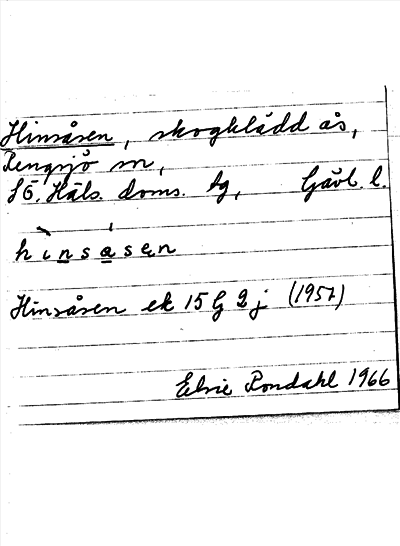 Hinsåsen, skogklädd ås,
Rengsjö sn,
SÖ. Häls. doms. tg, Gävl. l.
hìnsåsen
Hinsåsen ek 15 G 2 j (1957)
Elsie Rondahl 1966